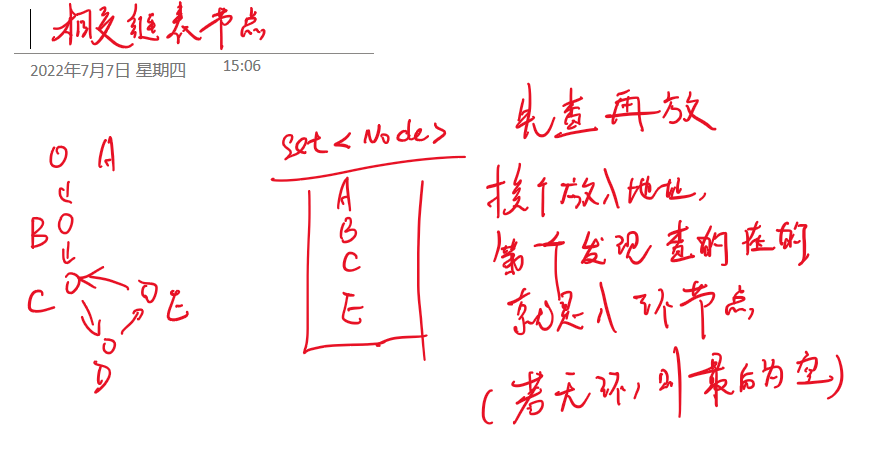 相交链表节点
2022年7月7日 星期四 15:06
O A
B O
C O O E
O
D
set<Node>
A
B
C
E
先查再放
挨个放入地址,
第一个发现查的在的
就是入环节点,
(若无环,则最后为空)